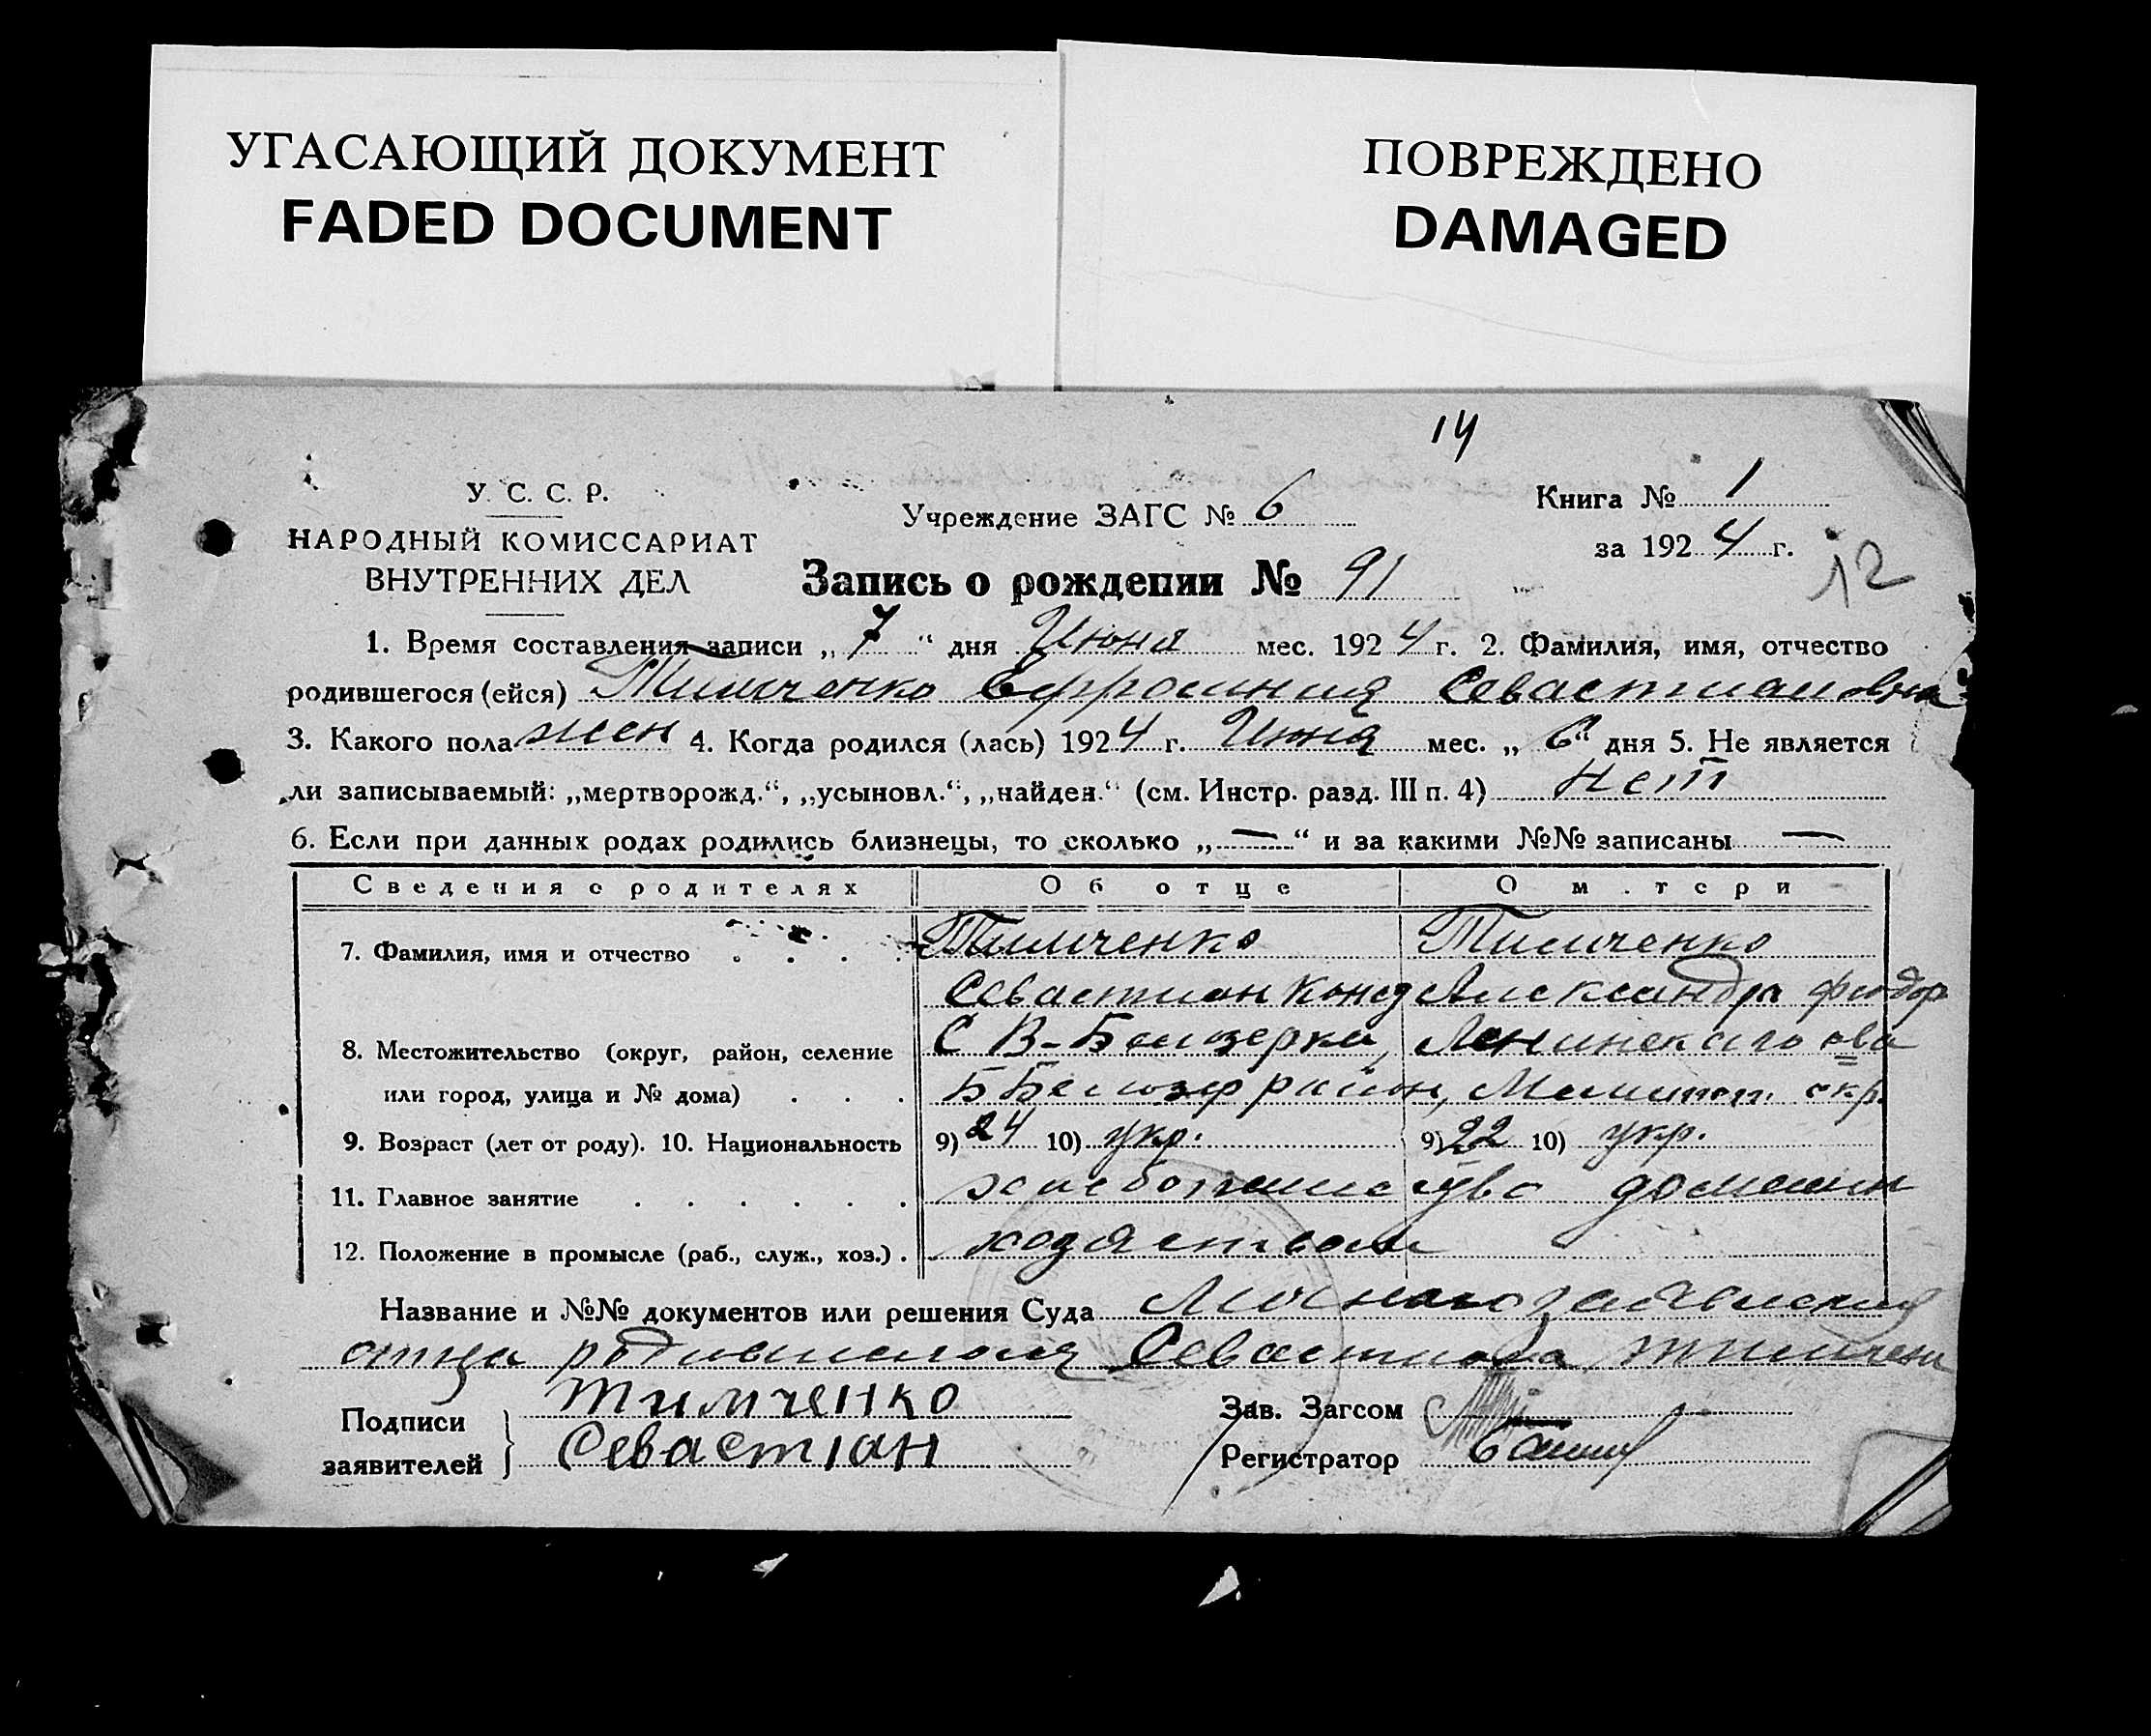 УГАСАЮЩИЙ ДОКУМЕНТ
FADED DOCUMENT
ПОВРЕЖДЕНО
DAMAGED
14
У. С. С. Р.
НАРОДНЫЙ КОМИССАРИАТ
ВНУТРЕННИХ ДЕЛ
Учреждение ЗАГС № 6
Книга № 1
за 1924 г.
12
Запись о рождении № 91
1. Время составления записи „7“ дня Июня мес. 1924 г. 2. Фамилия, имя, отчество
родившегося (ейся) Тимченко Ефросиния Севастиановна
3. Какого пола жен 4. Когда родился (лась) 1924 г. Июня мес. „6“ дня 5. Не является
ли записываемый: „мертворожд.“, „усыновл.“, „найден.“ (см. Инстр. разд. III п. 4) Нет
6. Если при данных родах родились близнецы, то сколько „—“ и за какими №№ записаны —
Сведения о родителях Об отце О м.тери
7. Фамилия, имя и отчество Тимченко Тимченко
Севастиан Конд Александра Феодор
8. Местожительство (округ, район, селение С В-Белозерка, Ленинскаго о-ва
или город, улица и № дома) Б Белозер район, Мелитоп. окр.
9. Возраст (лет от роду). 10. Национальность 9) 24 10) укр. 9) 22 10) укр.
11. Главное занятие хлебопашество домашн
12. Положение в промысле (раб., служ., хоз.) хозяйством
Название и №№ документов или решения Суда Личного заявления
отца родившегося Севастиана Тимчен
Подписи заявителей Тимченко
Севастiан
Зав. Загсом
Регистратор